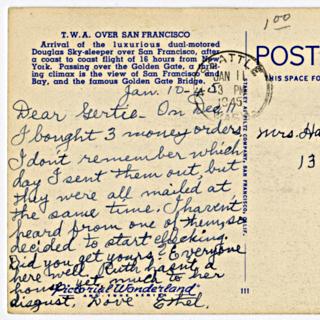 T.W.A. OVER SAN FRANCISCO
Arrival of the luxurious dual-motored
Douglas Sky-sleeper over San Francisco, after
a coast to coast flight of 16 hours from New
York. Passing over the Golden Gate, a
climax is the view of San Francisco and
Bay, and the famous Golden Gate Bridge.
Jan. 10-45
Dear Gertie - On Dec
I bought 3 money orders
I don't remember which
day I sent them out, but
they were all mailed at
the same time. I haven't
heard from one of them, so
decided to start checking.
Did you get yours? Everyone
here well. Ruth hasn't a
house yet much to her
disgust, Love Ethel.
Pictorial Wonderland
1 00
SEATTLE
JAN 11
3 PM
1945
POST
THIS SPACE FO
Mrs. Ha
13
111